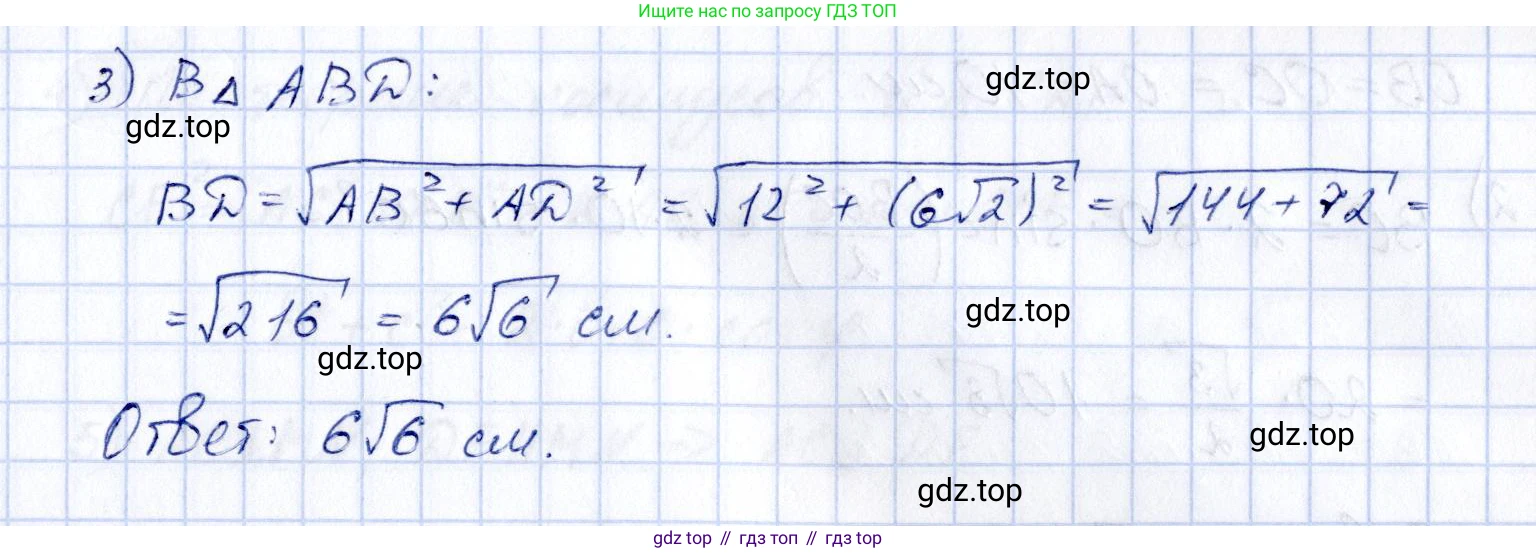 Ищите нас по запросу ГДЗ ТОП
3) В △ ABD:
gdz.top
gdz.top
BD = √(AB² + AD²) = √(12² + (6√2)²) = √(144 + 72) =
= √216 = 6√6 см.
gdz.top
gdz.top
Ответ: 6√6 см.
gdz.top
gdz.top
gdz top // гдз топ // гдз top